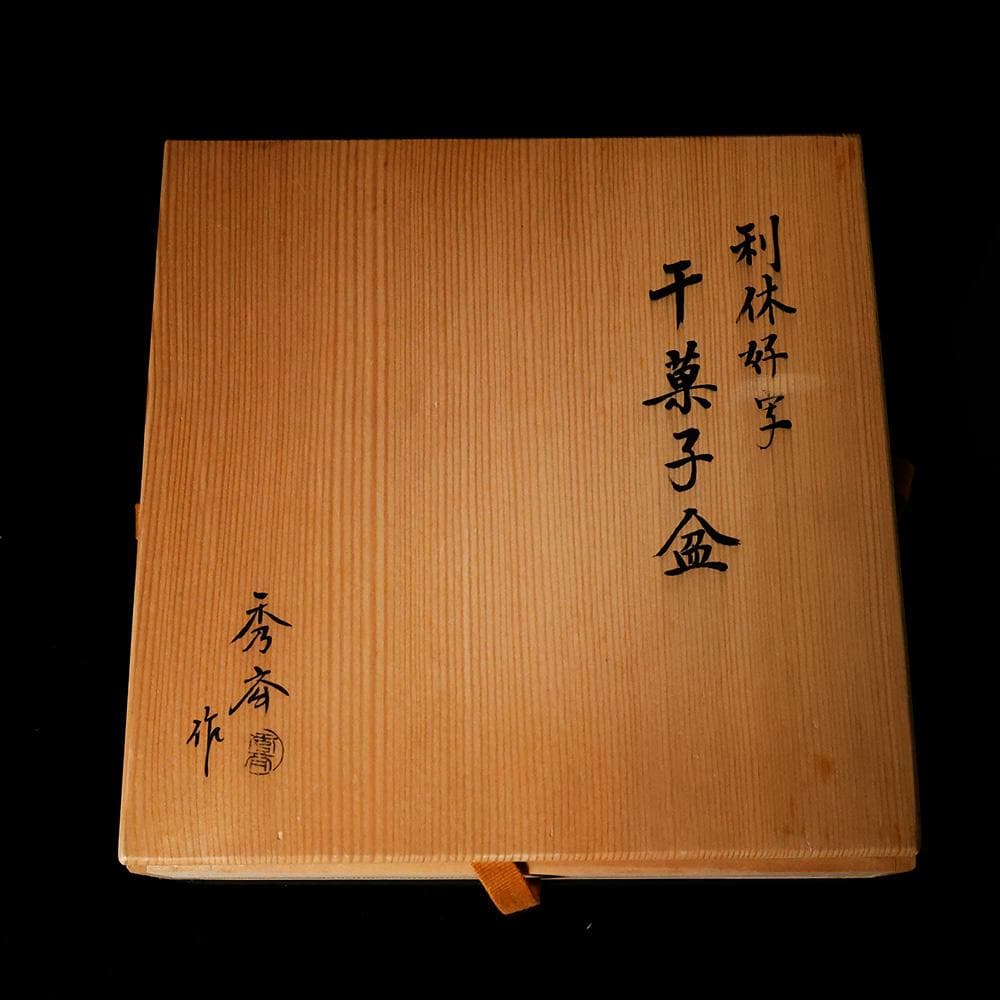 利休好写
干菓子盆
秀斎
作